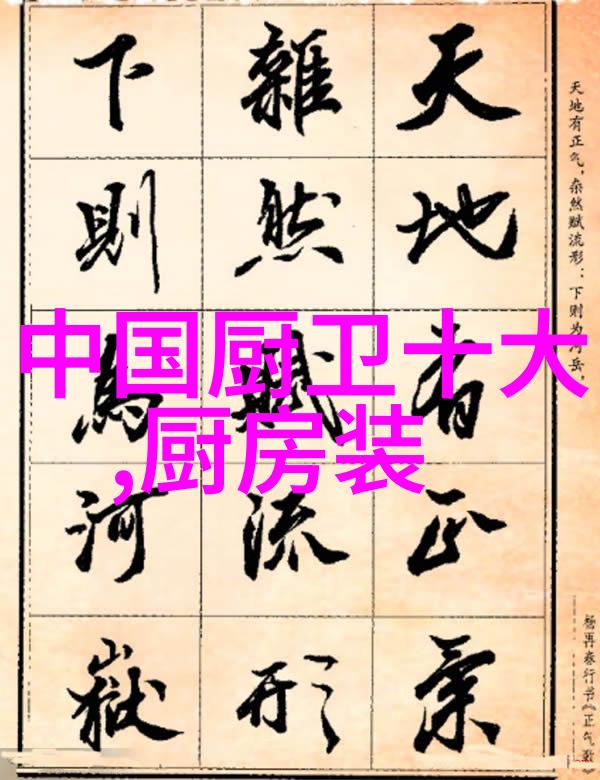 天地有正气，杂然赋流形：下则为河岳，
杨再春行书《正气歌》
天地有正氣
雜然賦流形
下則為河嶽
中国厨卫十大
,厨房装